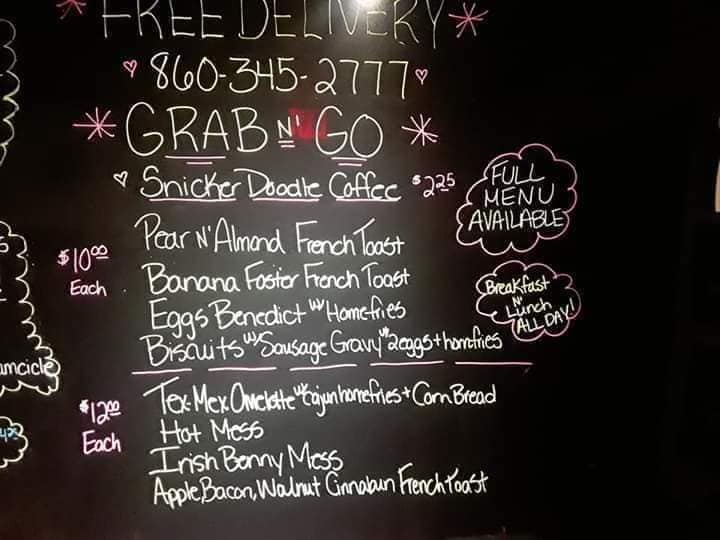 FREE DELIVERY
860-345-2777
GRAB N' GO
Snicker Doodle Coffee $2.25
FULL
MENU
AVAILABLE
$10.00
Each
Pear N' Almond French Toast
Banana Foster French Toast
Eggs Benedict w/ Homefries
Biscuits w/ Sausage Gravy w/ 2eggs + homfries
Breakfast
N'
Lunch
ALL DAY!
$12.00
Each
Tex-Mex Omelette w/ Cajun homefries + Corn Bread
Hot Mess
Irish Benny Mess
Apple, Bacon, Walnut Cinnabun French Toast
amcicle